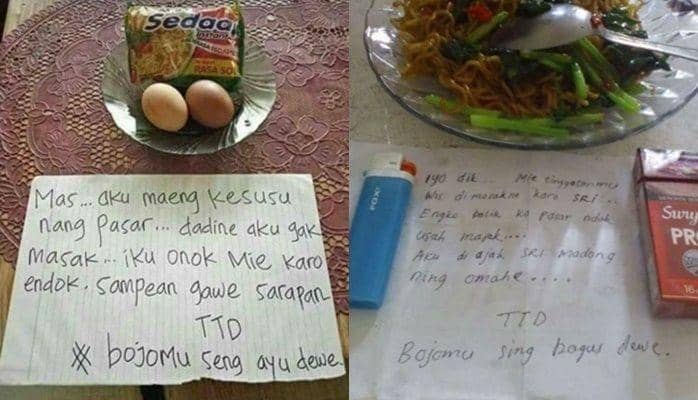 Sedaap
instant
RASA SO
Mas... aku maeng kesusu
nang pasar... dadine aku gak
masak... iku onok Mie karo
endok. sampean gawe sarapan
TTD
bojomu seng ayu dewe.
FOX
Iyo dik.... Mie tinggalanmu
Wis di masakne karo SRI...
Engko balik ko pasar ndak
usah masak....
Aku di ajak SRI madang
ning omahe....
TTD
Bojomu sing bagus dewe.
Surya
PRO
16